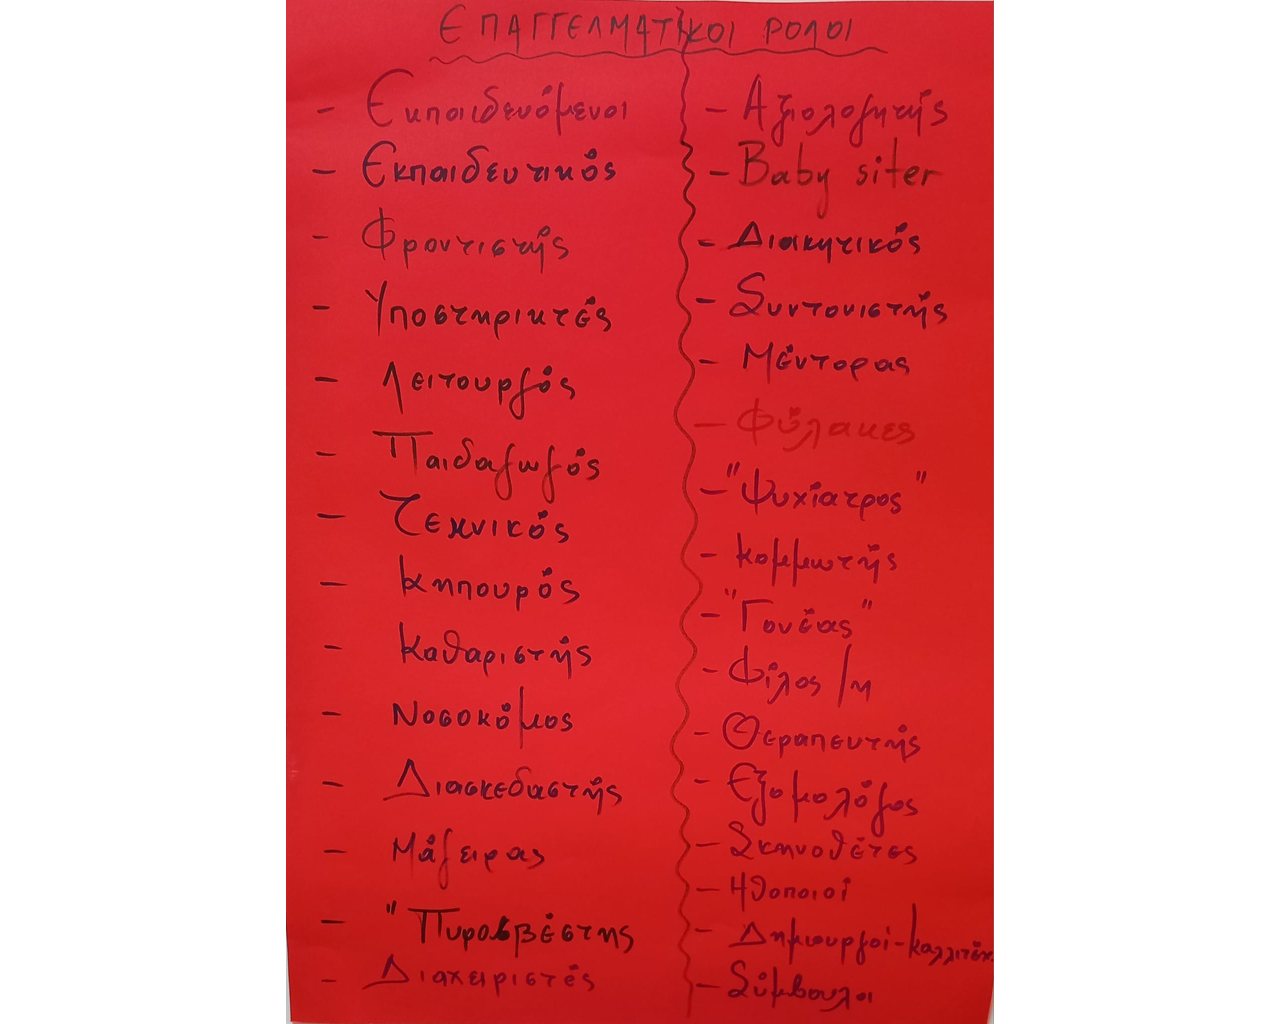 ΕΠΑΓΓΕΛΜΑΤΙΚΟΙ ΡΟΛΟΙ
- Εκπαιδευόμενοι
- Εκπαιδευτικός
- Φροντιστής
- Υποστηρικτές
- Λειτουργός
- Παιδαγωγός
- Τεχνικός
- Κηπουρός
- Καθαριστής
- Νοσοκόμος
- Διασκεδαστής
- Μάγειρας
- "Πυροσβέστης
- Διαχειριστές
- Αξιολογητής
- Baby siter
- Διακητικός
- Συντονιστής
- Μέντορας
- Φύλακες
- "Ψυχίατρος"
- Κομμωτής
- "Γονέας"
- Φίλος/η
- Θεραπευτής
- Εξομολόγος
- Σκηνοθέτες
- Ηθοποιοί
- Δημιουργοί-καλλιτέχ.
- Σύμβουλοι